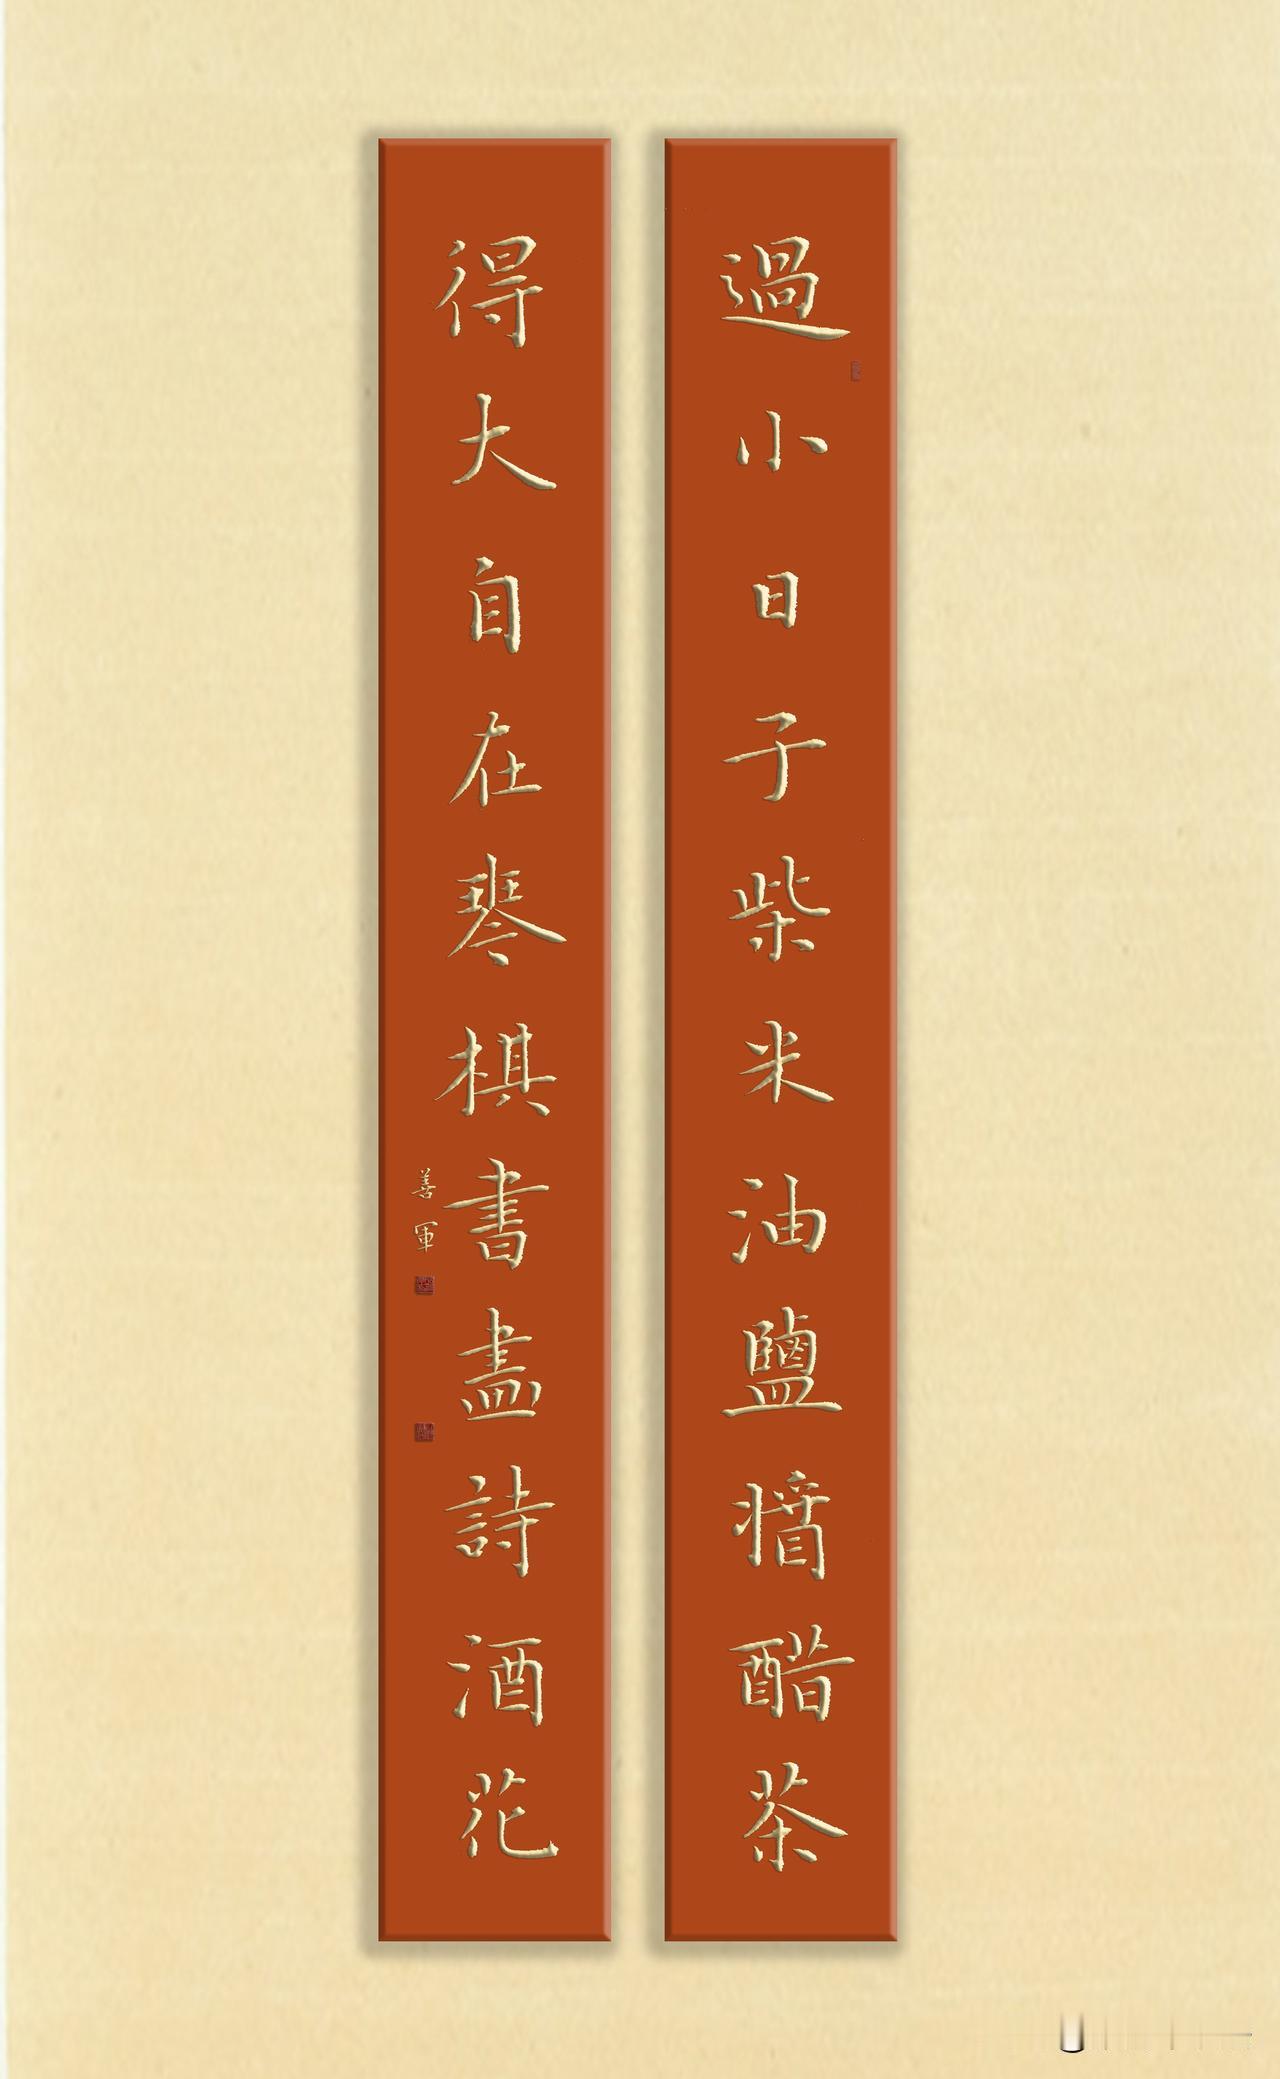 過小日子柴米油鹽牆醋茶
得大自在琴棋書盡詩酒花
善軍